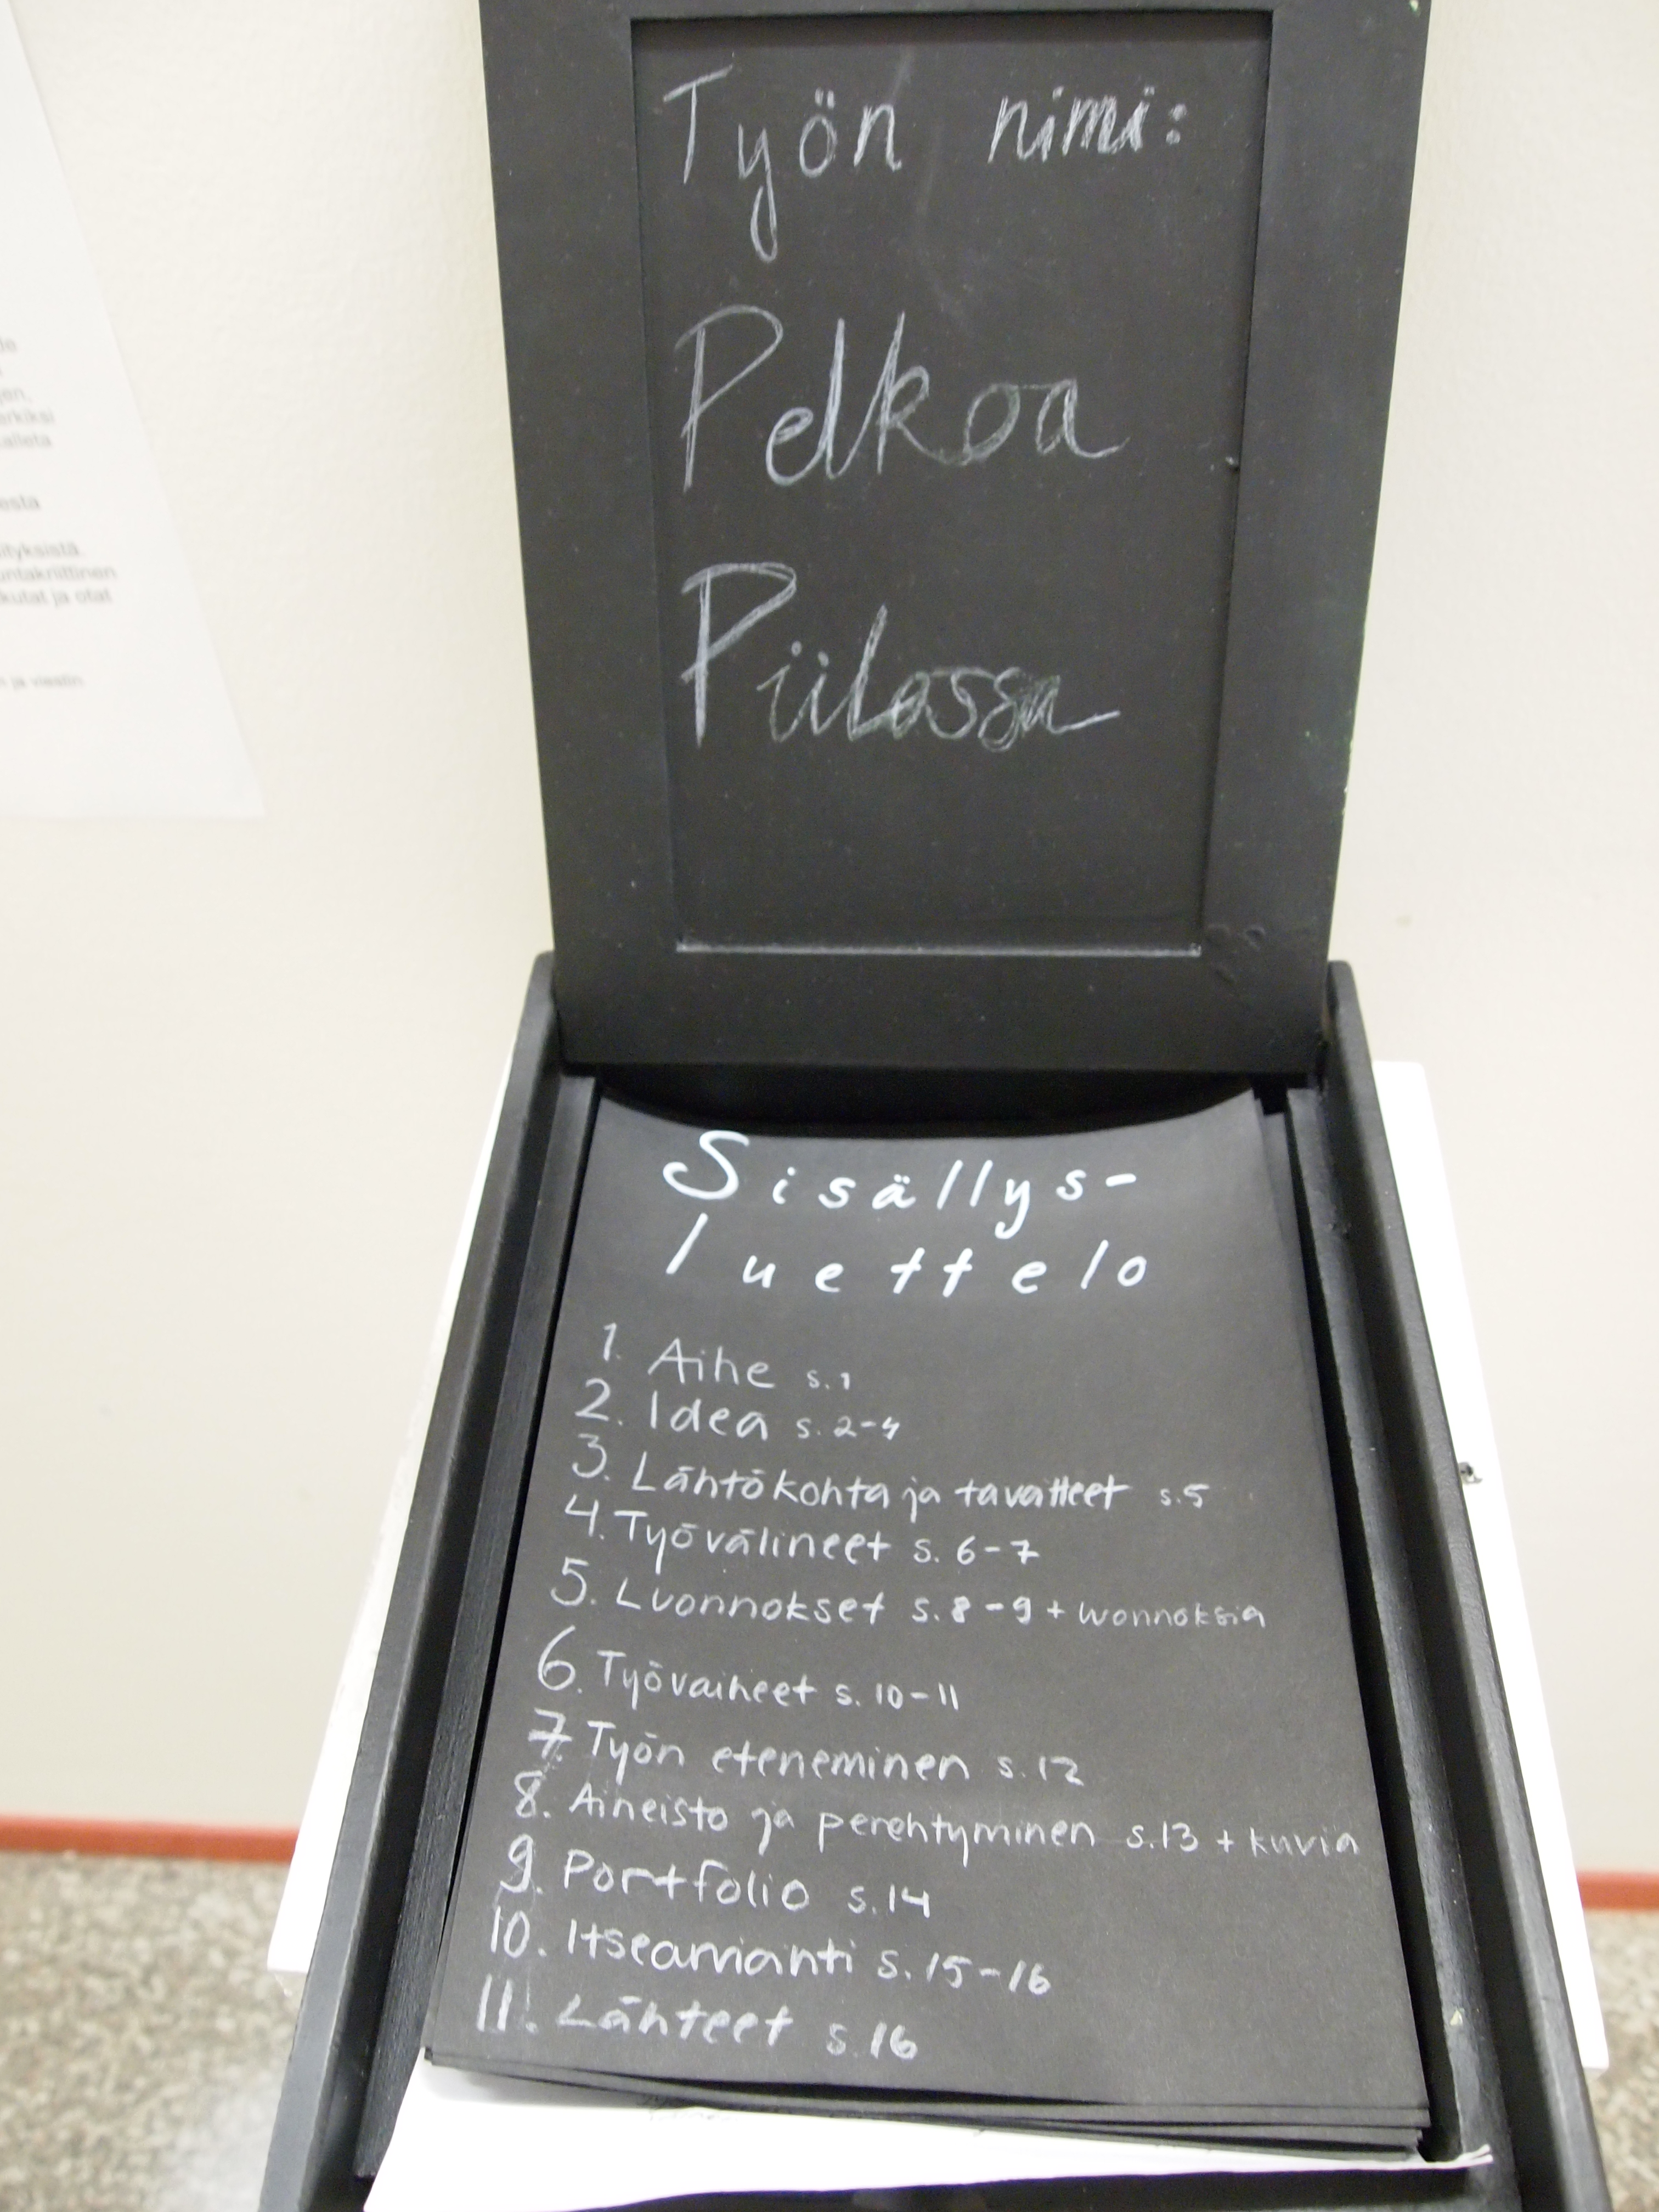 Työn nimi:
Pelkoa
Piilossa
Sisällys-
luettelo
1. Aihe s.1
2. Idea s. 2-4
3. Lähtökohta ja tavoitteet s.5
4. Työvälineet s. 6-7
5. Luonnokset s. 8-9 + luonnoksia
6. Työvaiheet s. 10-11
7. Työn eteneminen s.12
8. Aineisto ja perehtyminen s.13 + kuvia
9. Portfolio s.14
10. Itsearviointi s. 15-16
11. Lähteet s.16
esta
ityksistä.
untakriittinen
kutat ja otat
n ja viestin
erkiksi